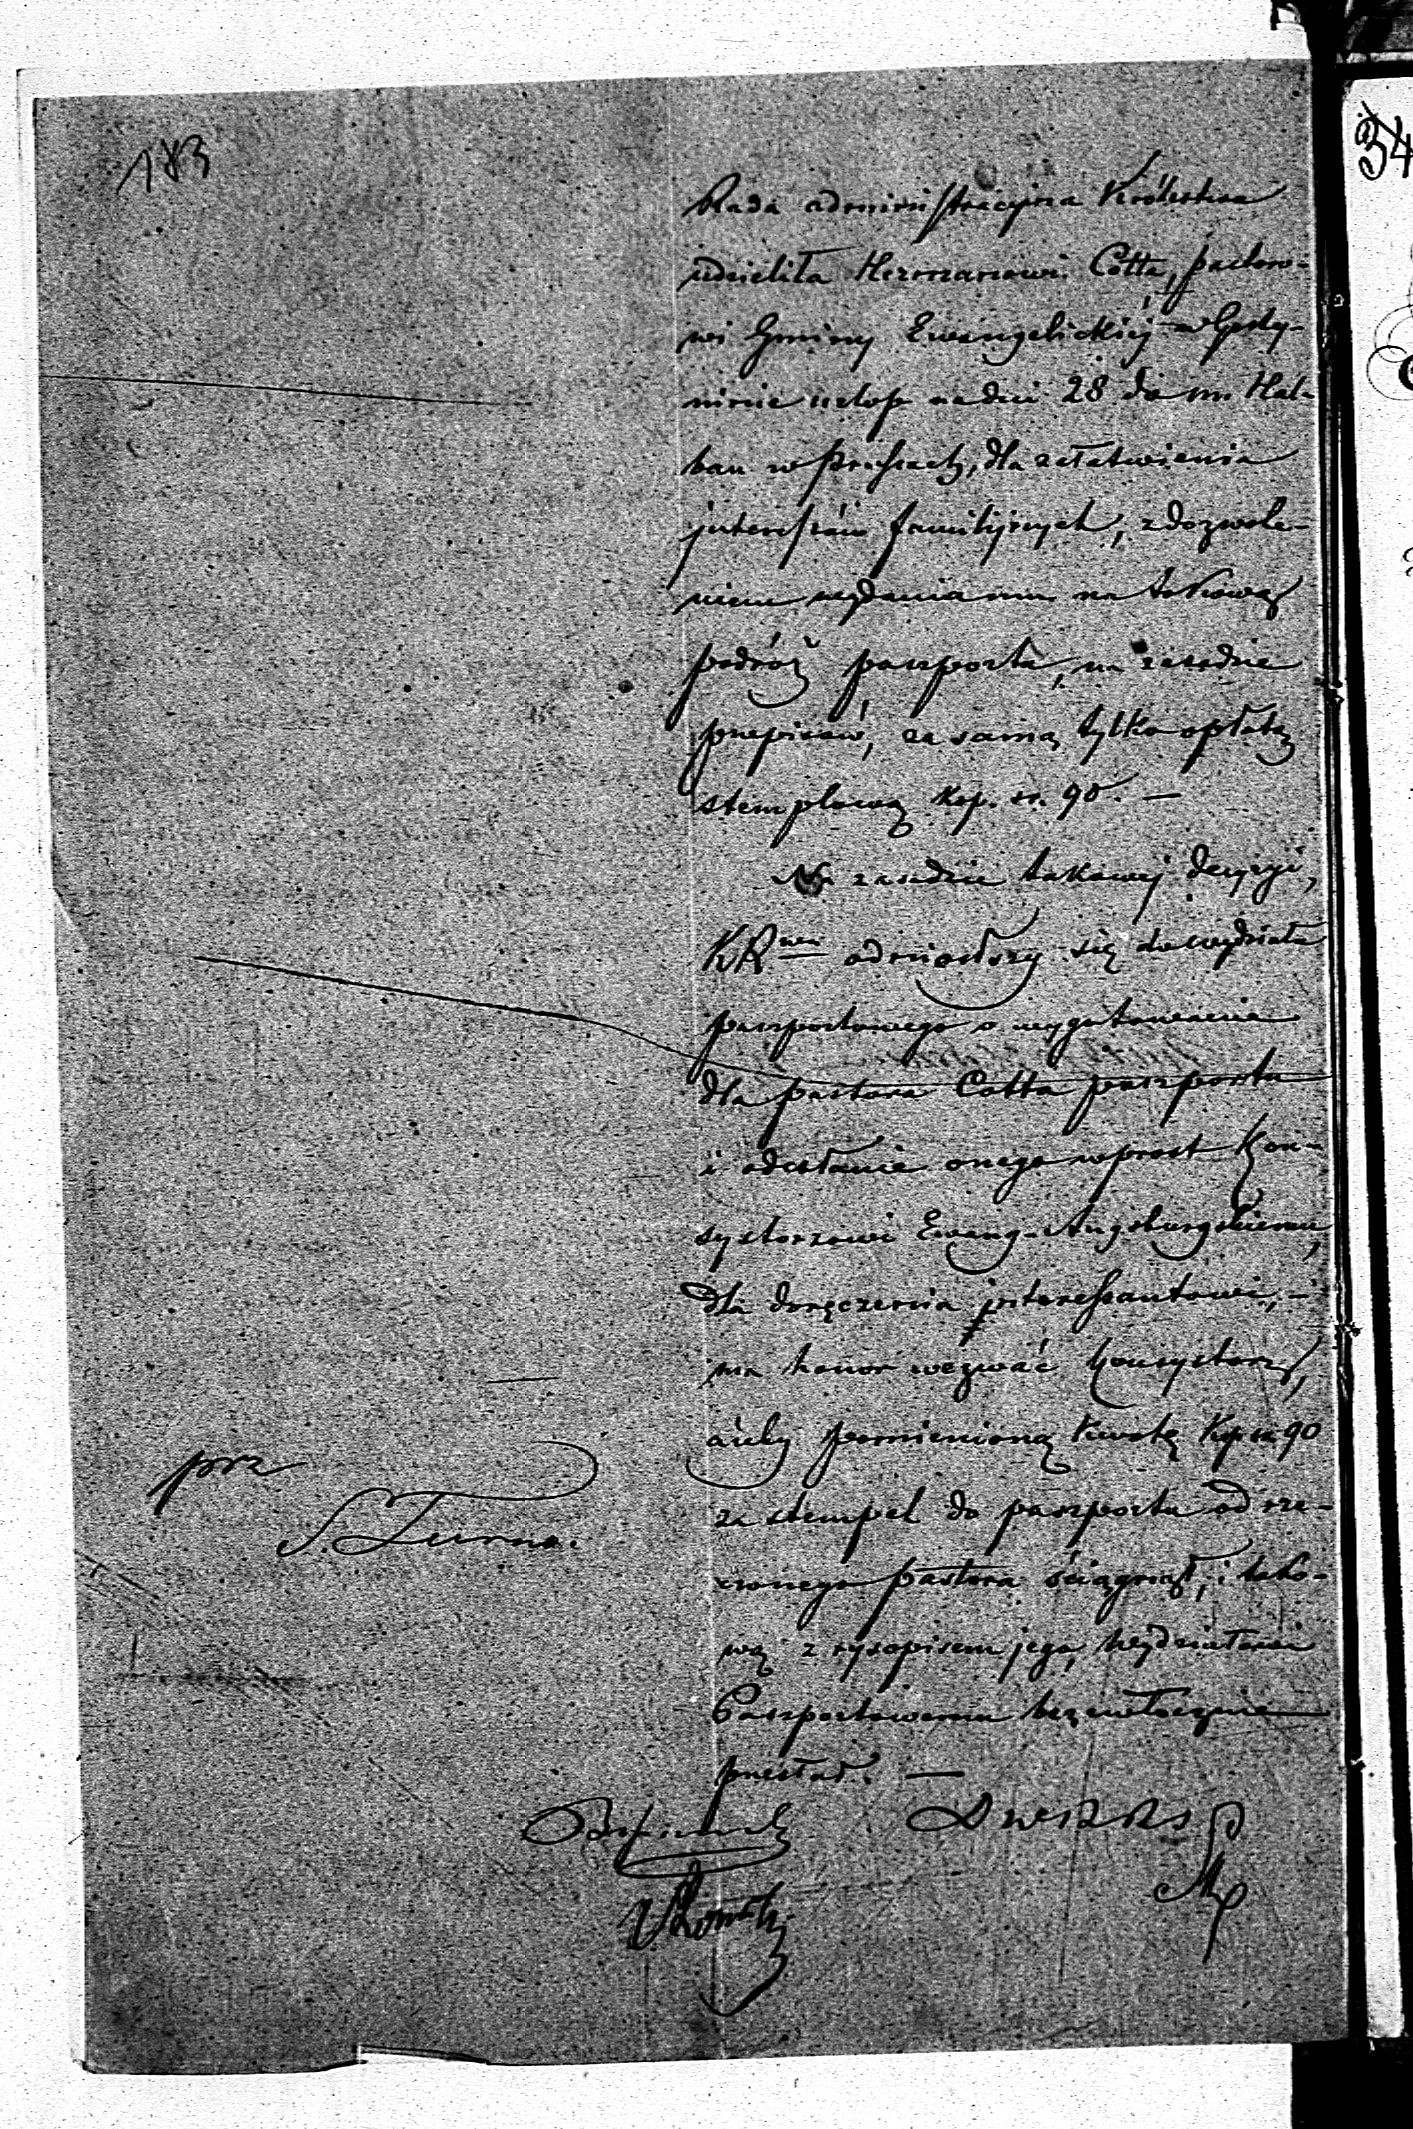 183
34
Rada administracyjna Królestwa
udzieliła Hermanowi Cotta, pastoro-
wi Gminy Ewangelickiéj w Gosty-
ninie urlop na dni 28 do m. Hal-
bau w Prussach, dla załatwienia
interessów familijnych, z dozwole-
niem wydania mu na takową
podróż paszportu, na zasadzie
przepisów, za samą tylko opłatą
stemplową kop. sr. 90. —
Na zasadzie takowej decyzyi,
KR odniosłszy się do wydziału
paszportowego o wygotowanie
dla pastora Cotta paszportu
i odesłanie onego wprost Kon-
systorzowi Ewang-Augsburgskiemu,
dla doręczenia interessantowi, —
ma honor wezwać Konsystorz,
ażeby pomienioną kwotę Kop sr. 90
za stempel do paszportu od rze-
czonego pastora ściągnął, i tako-
wą z rysopisem jego, Wydziałowi
Paszportowemu bezzwłocznie
przesłał. —
prz